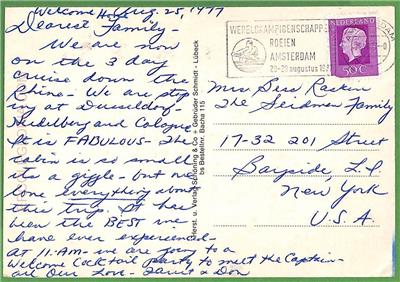 Welcome Home Aug. 25, 1977
Dearest Family-
We are now
on the 3 day
cruise down the
Rhine- We are stop
ing at Dusseldorf
Heidelberg and Cologne
It is FABULOUS- The
cabin is so small
its a giggle- but we
love everything about
this trip. It has
been the BEST we
have ever experienced-
at 11:AM- we are going to a
Welcome Cocktail party to meet the Captain-
all Our Love- Janet & Don
Horst. u. Verlag Schöning & Co + Gebrüder Schmidt - Lübeck
Bestellnr. Bacha 115
WERELDKAMPIOENSCHAPPEN
ROEIEN
AMSTERDAM
20-28 augustus 1977
NEDERLAND
50c
Mrs
The Seidman Family
17-32 201 Street
Bayside L.I.
New York
U.S.A.